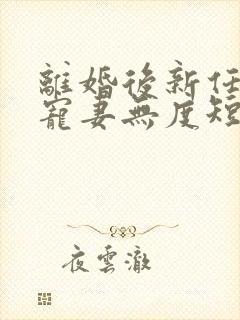 離婚後新任
寵妻無度短
夜雲澈